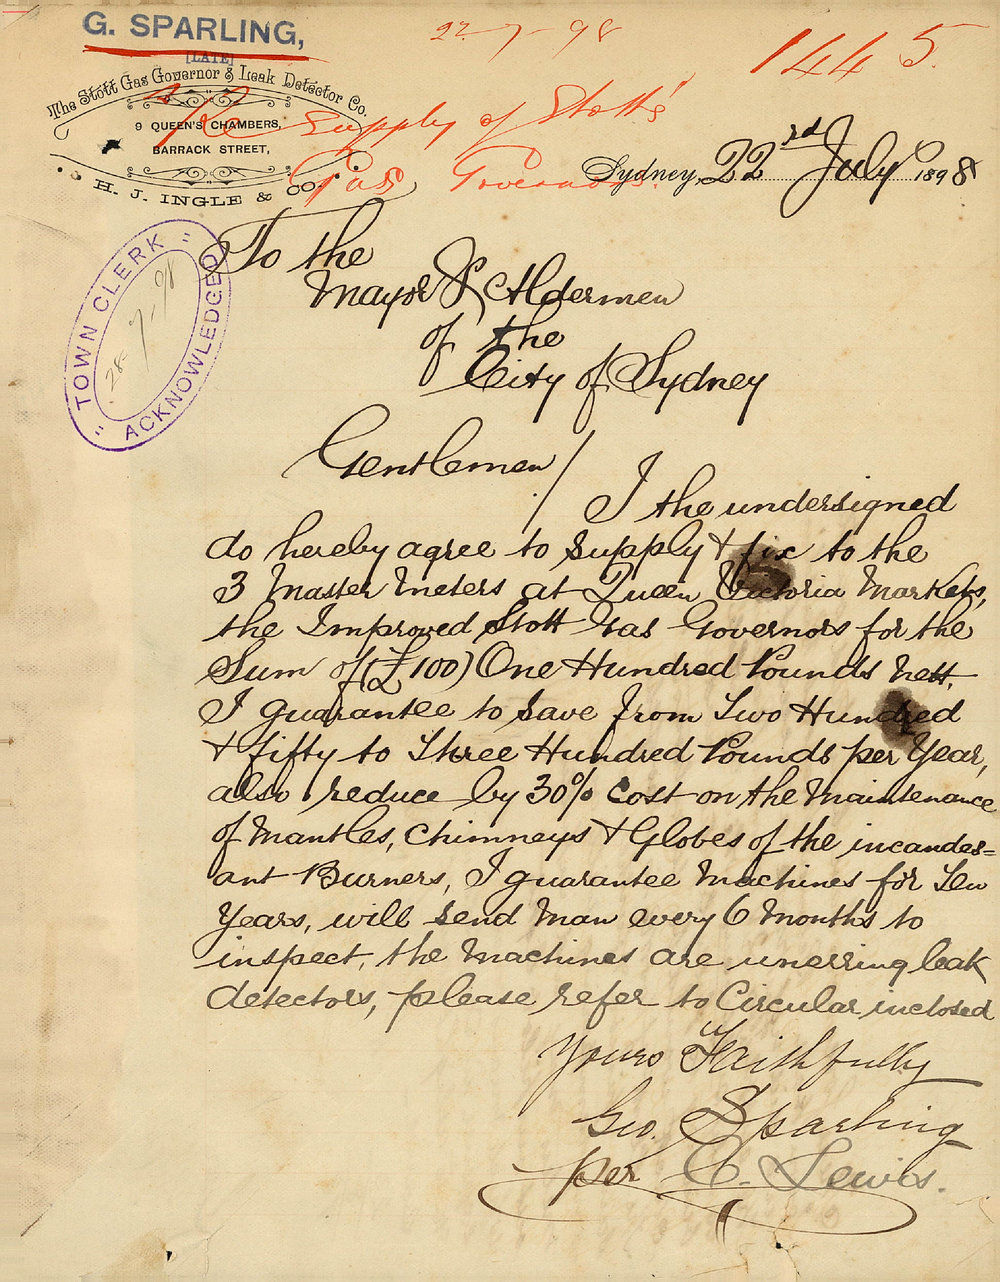 G. SPARLING,
[LATE]
The Stott Gas Governor & Leak Detector Co.
9 QUEEN'S CHAMBERS,
BARRACK STREET,
H. J. INGLE & CO.
22-7-98
1445.
Re Supply of Stott's
Gas Governors.
Sydney, 22nd July 1898
TOWN CLERK
28-7-98
ACKNOWLEDGED
To the
Mayor & Aldermen
of the
City of Sydney
Gentlemen/
I the undersigned
do hereby agree to supply & fix to the
3 Master Meters at Queen Victoria Markets,
the Improved Stott Gas Governors for the
Sum of (£100) One Hundred Pounds nett.
I guarantee to save from Two Hundred
& fifty to Three Hundred Pounds per Year,
also reduce by 30% cost on the Maintenance
of Mantles, Chimneys & Globes of the incandes=
ant Burners, I guarantee Machines for Ten
Years, will send man every 6 months to
inspect, the Machines are unerring leak
detectors, please refer to Circular inclosed
Yours Faithfully
Geo. Sparling
per C. Lewis.